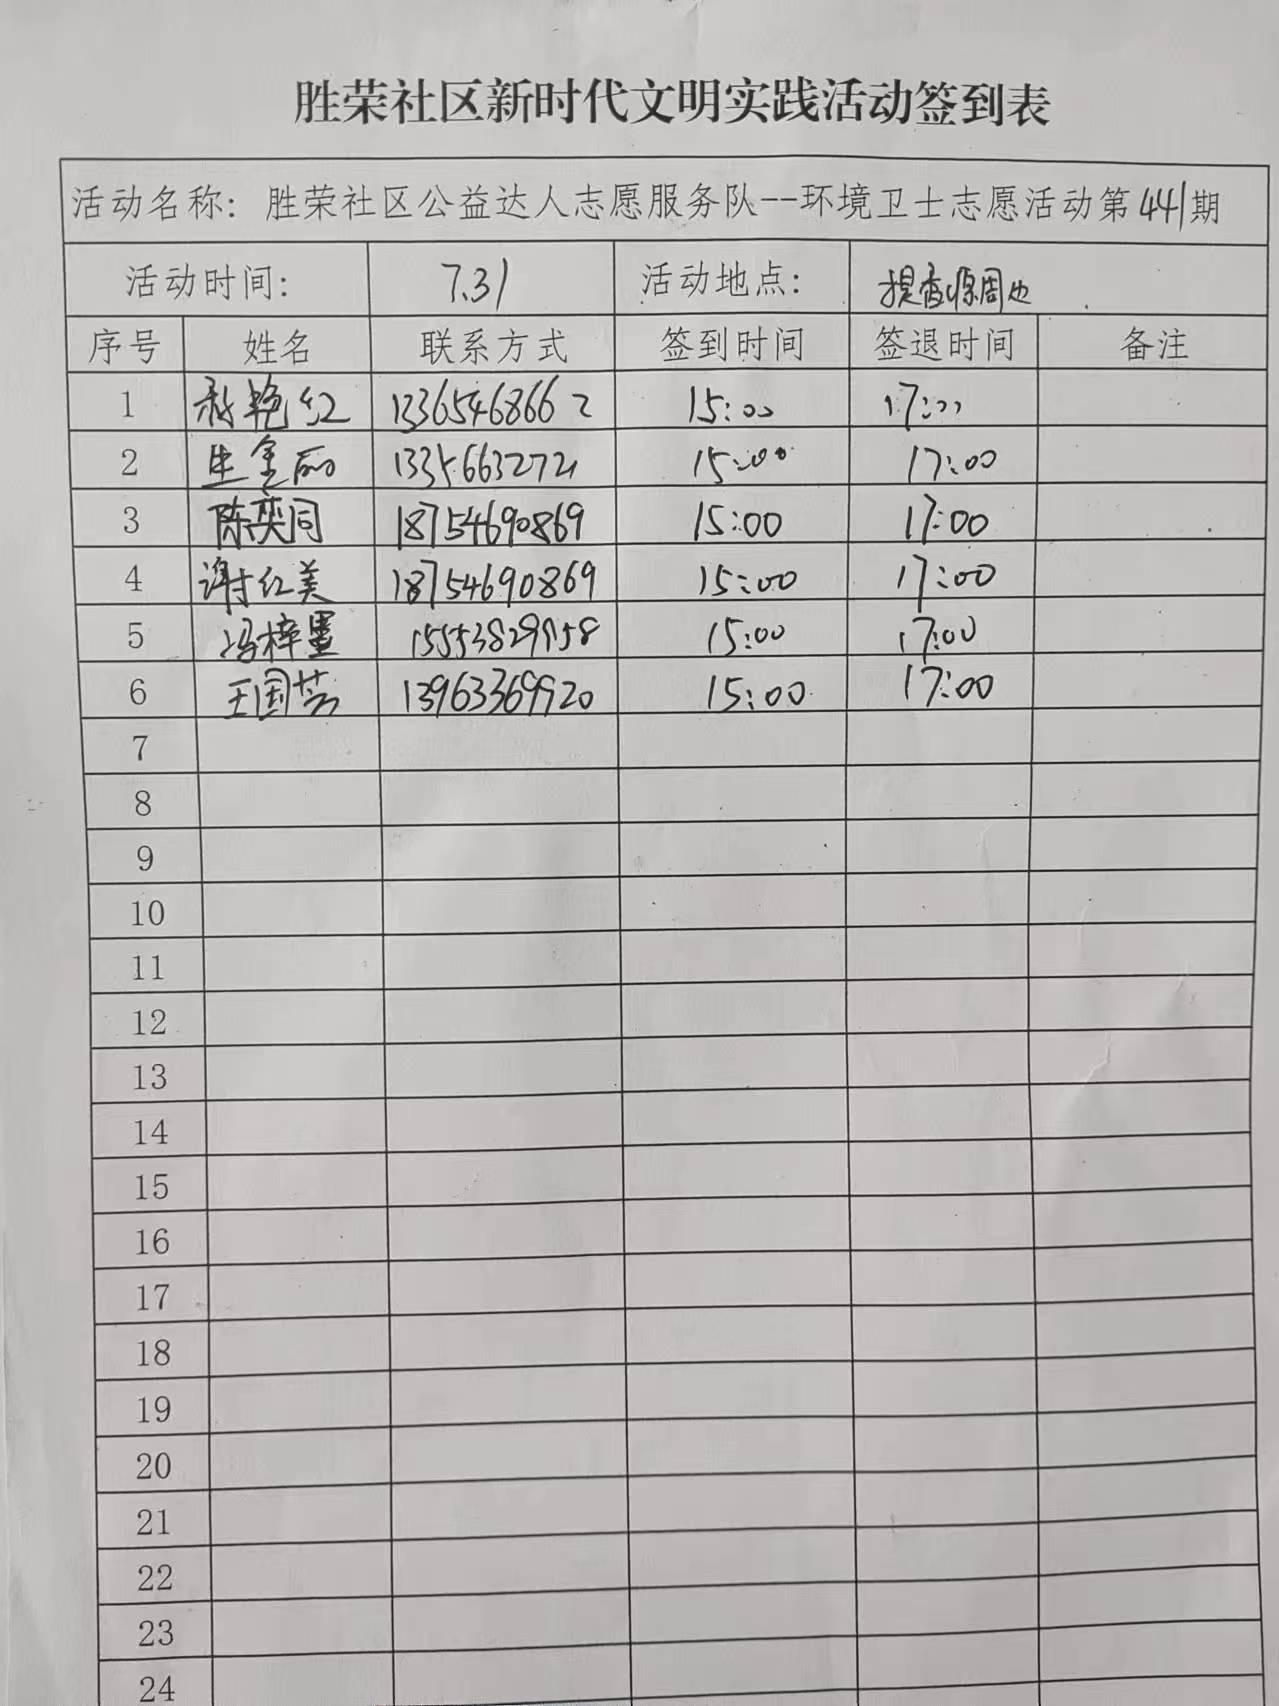 胜荣社区新时代文明实践活动签到表
活动名称：胜荣社区公益达人志愿服务队--环境卫士志愿活动第441期
活动时间： 7.31 活动地点： 提香源周边
序号 姓名 联系方式 签到时间 签退时间 备注
1 艳红 13365468662 15:00 17:00
2 生金丽 13356632721 15:00 17:00
3 陈奕同 18754690869 15:00 17:00
4 谢红美 18754690869 15:00 17:00
5 冯梓墨 15553829958 15:00 17:00
6 王国芸 13963369920 15:00 17:00
7
8
9
10
11
12
13
14
15
16
17
18
19
20
21
22
23
24